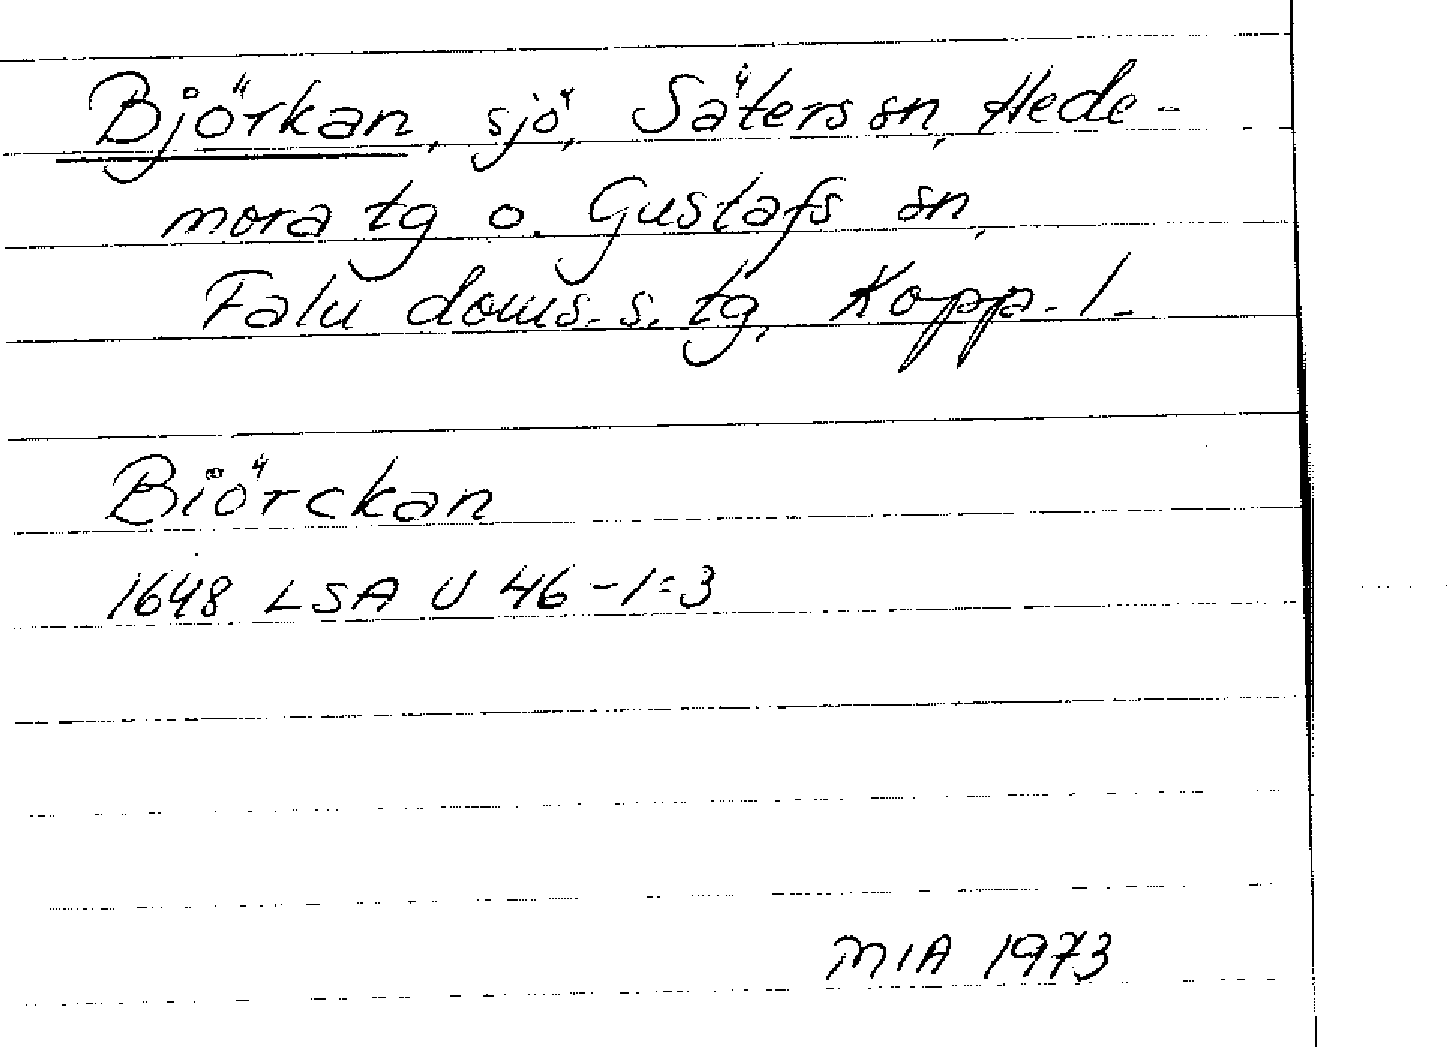 Björkan, sjö, Säters sn, Hede-
mora tg o. Gustafs sn,
Falu doms. s. tg, Kopp. l.
Biörckan
1648 LSA U 46-1:3
MIA 1973